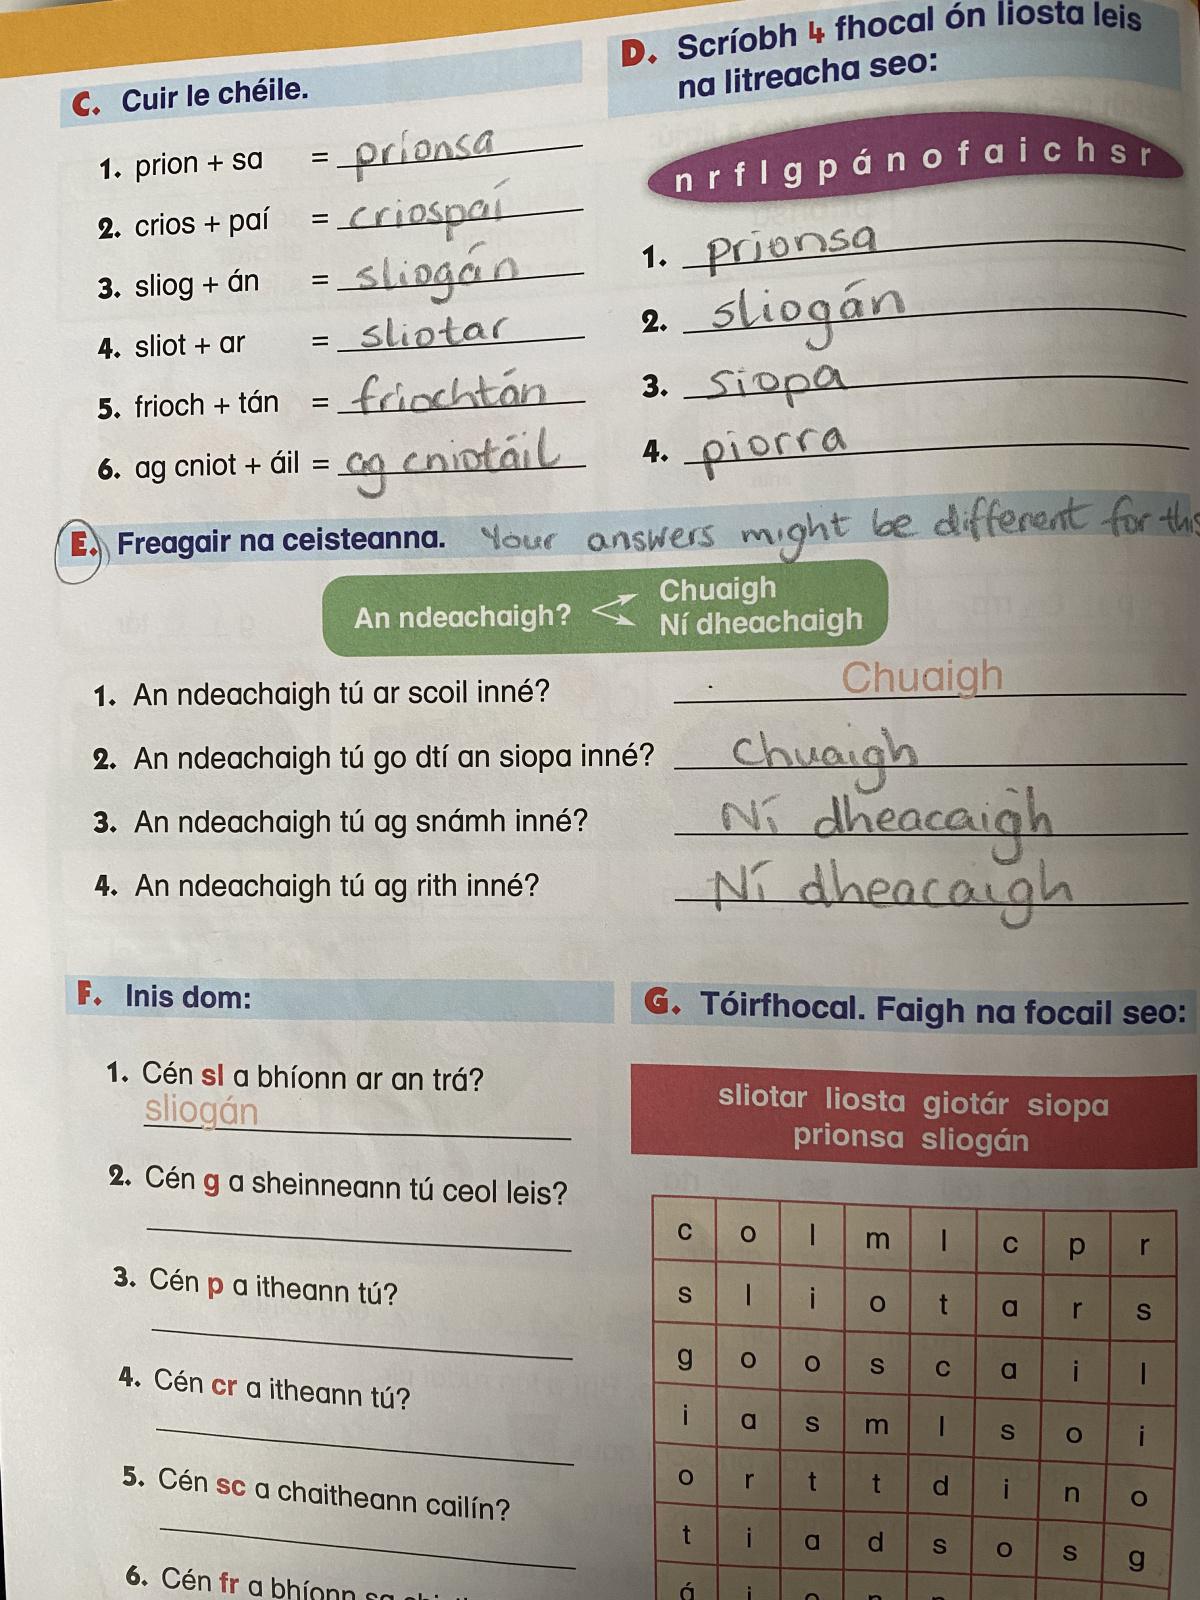 C. Cuir le chéile.
1. prion + sa = prionsa
2. crios + paí = criospaí
3. sliog + án = sliogán
4. sliot + ar = sliotar
5. frioch + tán = friochtán
6. ag cniot + áil = ag cniotáil
D. Scríobh 4 fhocal ón liosta leis
na litreacha seo:
n r f l g p á n o f a i c h s r
1. prionsa
2. sliogán
3. siopa
4. piorra
E. Freagair na ceisteanna. Your answers might be different for this
An ndeachaigh? Chuaigh
Ní dheachaigh
1. An ndeachaigh tú ar scoil inné? Chuaigh
2. An ndeachaigh tú go dtí an siopa inné? Chuaigh
3. An ndeachaigh tú ag snámh inné? Ní dheacaigh
4. An ndeachaigh tú ag rith inné? Ní dheacaigh
F. Inis dom:
1. Cén sl a bhíonn ar an trá?
sliogán
2. Cén g a sheinneann tú ceol leis?
3. Cén p a itheann tú?
4. Cén cr a itheann tú?
5. Cén sc a chaitheann cailín?
6. Cén fr a bhíonn sa
G. Tóirfhocal. Faigh na focail seo:
sliotar liosta giotár siopa
prionsa sliogán
c o l m l c p r
s l i o t a r s
g o o s c a i l
i a s m l s o i
o r t t d i n o
t i a d s o s g
á i